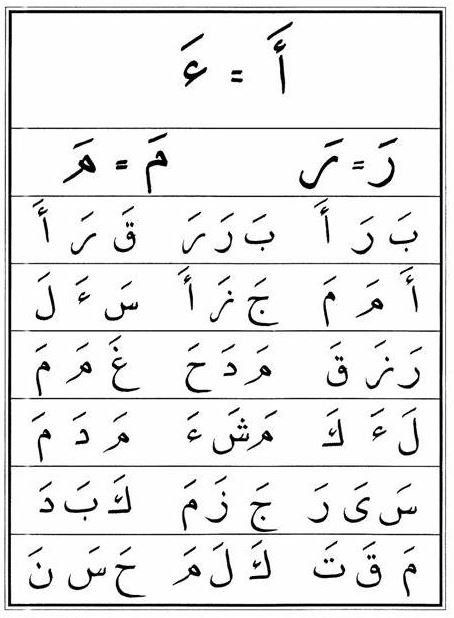 أَ = ءَ
رَ = رَ مَ = مَ
بَ رَ أَ بَ رَ رَ قَ رَ أَ
أَ مَ مَ جَ زَ أَ سَ ءَ لَ
رَ زَ قَ مَ دَ حَ غَ مَ مَ
لَ ءَ كَ مَ شَ ءَ مَ دَ مَ
سَ یَ رَ جَ زَ مَ كَ بَ دَ
مَ قَ تَ كَ لَ مَ حَ سَ نَ